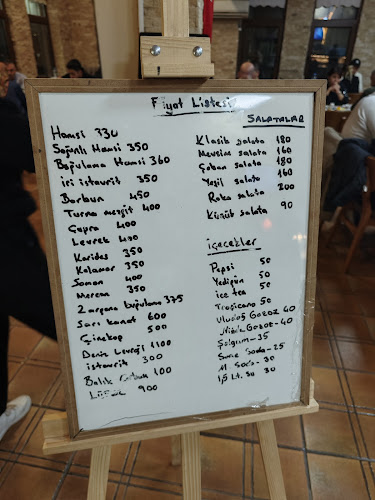 Fiyat Listesi
Hamsi 330
Soğanlı Hamsi 350
Buğulama Hamsi 360
iri istavrit 350
Barbun 450
Turna mezgit 400
Çupra 400
Levrek 400
Karides 350
Kalamar 350
Somon 400
Mercan 350
Zargana buğulama 375
Sarı kanat 600
Çinekop 500
Deniz Levreği 1100
istavrit 300
Balık Çorba 100
Lüfer 900
SALATALAR
Klasik salata 180
Mevsim salata 160
Çoban salata 180
Yeşil salata 160
Roka salata 200
Küçük salata 90
içecekler
Pepsi 50
Yedigün 50
ice tea 50
Tropicana 50
Uludağ Gazoz 40
Niğde Gazoz - 40
Şalgam - 35
Sade Soda - 25
M Soda - 30
Lt. Su 30